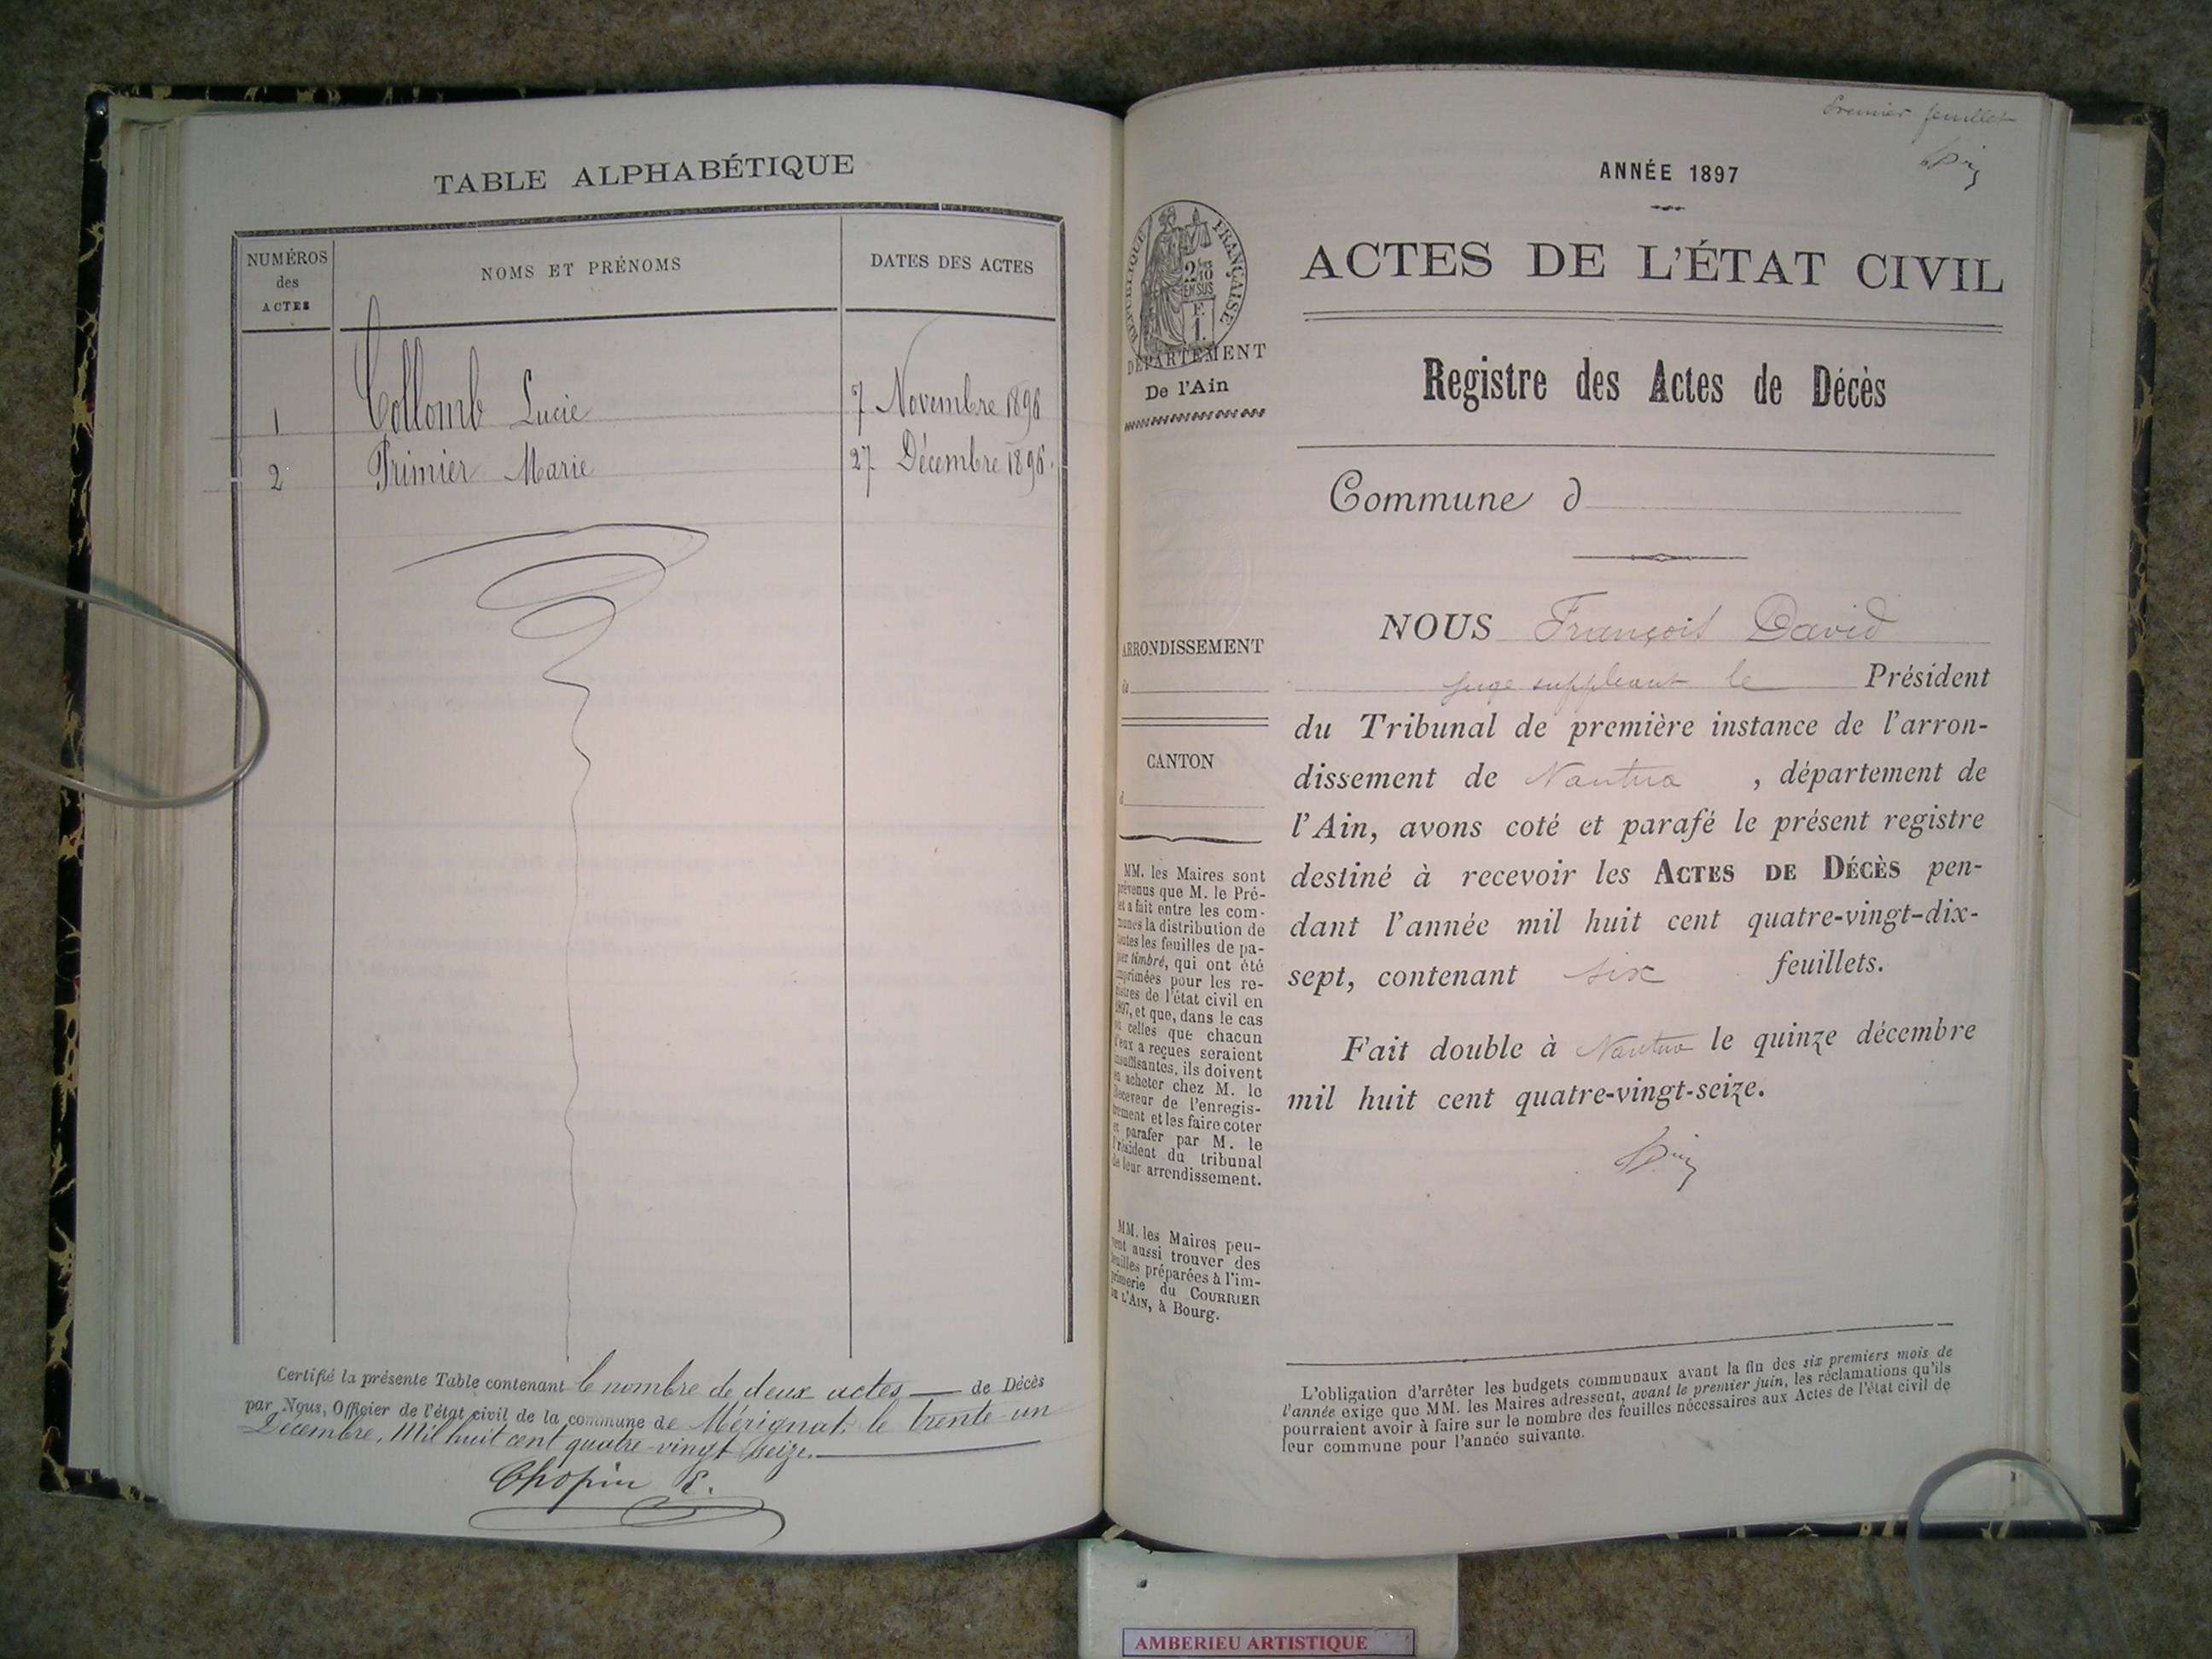 TABLE ALPHABÉTIQUE
NUMÉROS
des
ACTES
NOMS ET PRÉNOMS
DATES DES ACTES
1 Collomb Lucie 7 Novembre 1896
2 Primier Marie 27 Décembre 1896.
Certifié la présente Table contenant le nombre de deux actes — de Décès
par Nous, Officier de l'état civil de la commune de Mérignat, le trente-un
Décembre, Mil huit cent quatre-vingt seize.
Chopin E.
Premier feuillet
ANNÉE 1897
RÉPUBLIQUE FRANÇAISE
2/10
EN SUS
F.
1.
DÉPARTEMENT
De l'Ain
ACTES DE L'ÉTAT CIVIL
Registre des Actes de Décès
Commune d
ARRONDISSEMENT
de
CANTON
d
MM. les Maires sont
prévenus que M. le Pré-
et a fait entre les com-
munes la distribution de
toutes les feuilles de pa-
pier timbré, qui ont été
imprimées pour les re-
gistres de l'état civil en
1897, et que, dans le cas
où celles que chacun
d'eux a reçues seraient
insuffisantes, ils doivent
en acheter chez M. le
Receveur de l'enregis-
trement et les faire coter
et parafer par M. le
Président du tribunal
de leur arrondissement.
MM. les Maires peu-
vent aussi trouver des
feuilles préparées à l'im-
primerie du COURRIER
DE L'AIN, à Bourg.
NOUS François David
juge suppléant le Président
du Tribunal de première instance de l'arron-
dissement de Nantua , département de
l'Ain, avons coté et parafé le présent registre
destiné à recevoir les ACTES DE DÉCÈS pen-
dant l'année mil huit cent quatre-vingt-dix-
sept, contenant six feuillets.
Fait double à Nantua le quinze décembre
mil huit cent quatre-vingt-seize.
L'obligation d'arrêter les budgets communaux avant la fin des six premiers mois de
l'année exige que MM. les Maires adressent, avant le premier juin, les réclamations qu'ils
pourraient avoir à faire sur le nombre des feuilles nécessaires aux Actes de l'état civil de
leur commune pour l'année suivante.
AMBERIEU ARTISTIQUE